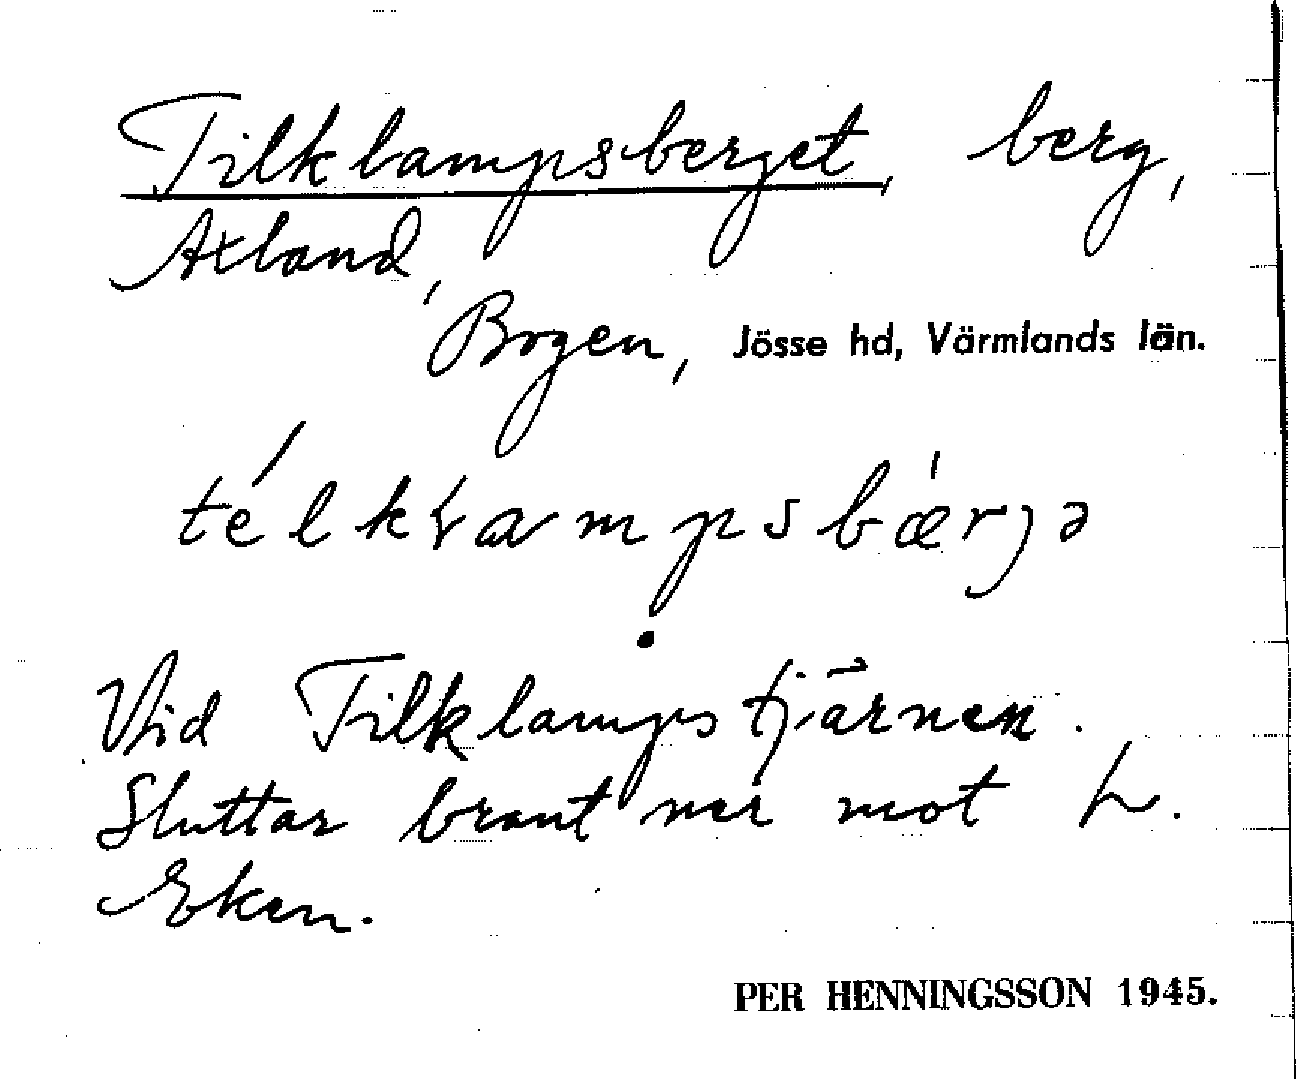 Tilklampsberget, berg,
Axland,
Bogen, Jösse hd, Värmlands län.
Vid Tilklampstjärnen.
Sluttar brant ner mot L.
Eken.
PER HENNINGSSON 1945.